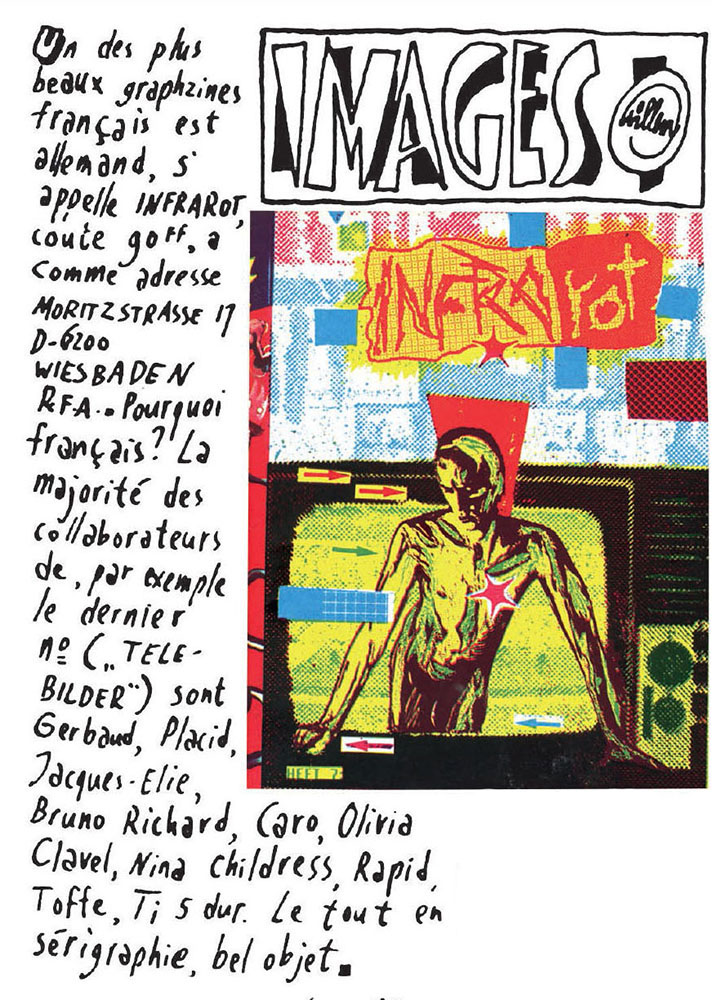 IMAGES
Willem
Un des plus
beaux graphzines
français est
allemand, s'
appelle INFRAROT,
coute 90FF, a
comme adresse
MORITZSTRASSE 17
D-6200
WIESBADEN
RFA.. Pourquoi
français? La
majorité des
collaborateurs
de, par exemple
le dernier
nº („TELE-
BILDER”) sont
Gerbaud, Placid,
Jacques-Elie,
Bruno Richard, Caro, Olivia
Clavel, Nina childress, Rapid,
Toffe, Ti 5 dur. Le tout en
sérigraphie, bel objet.
INFRArot
HEFT 7